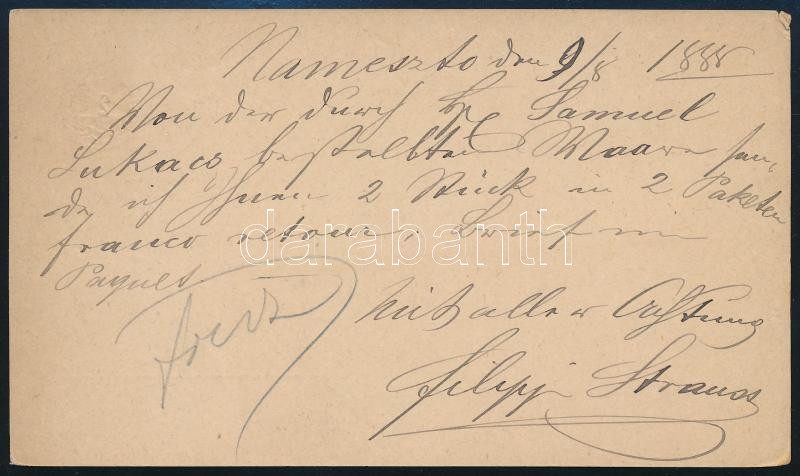 Nameszto den 9/8 1888
Von der durch Hr. Samuel
Lukacs bestellten Waare sen,
de ich Ihnen 2 Stück in 2 Paketen
franco retour, Brief im
Paquet.
Mit aller Achtung
Filipp Strauss
darabanth